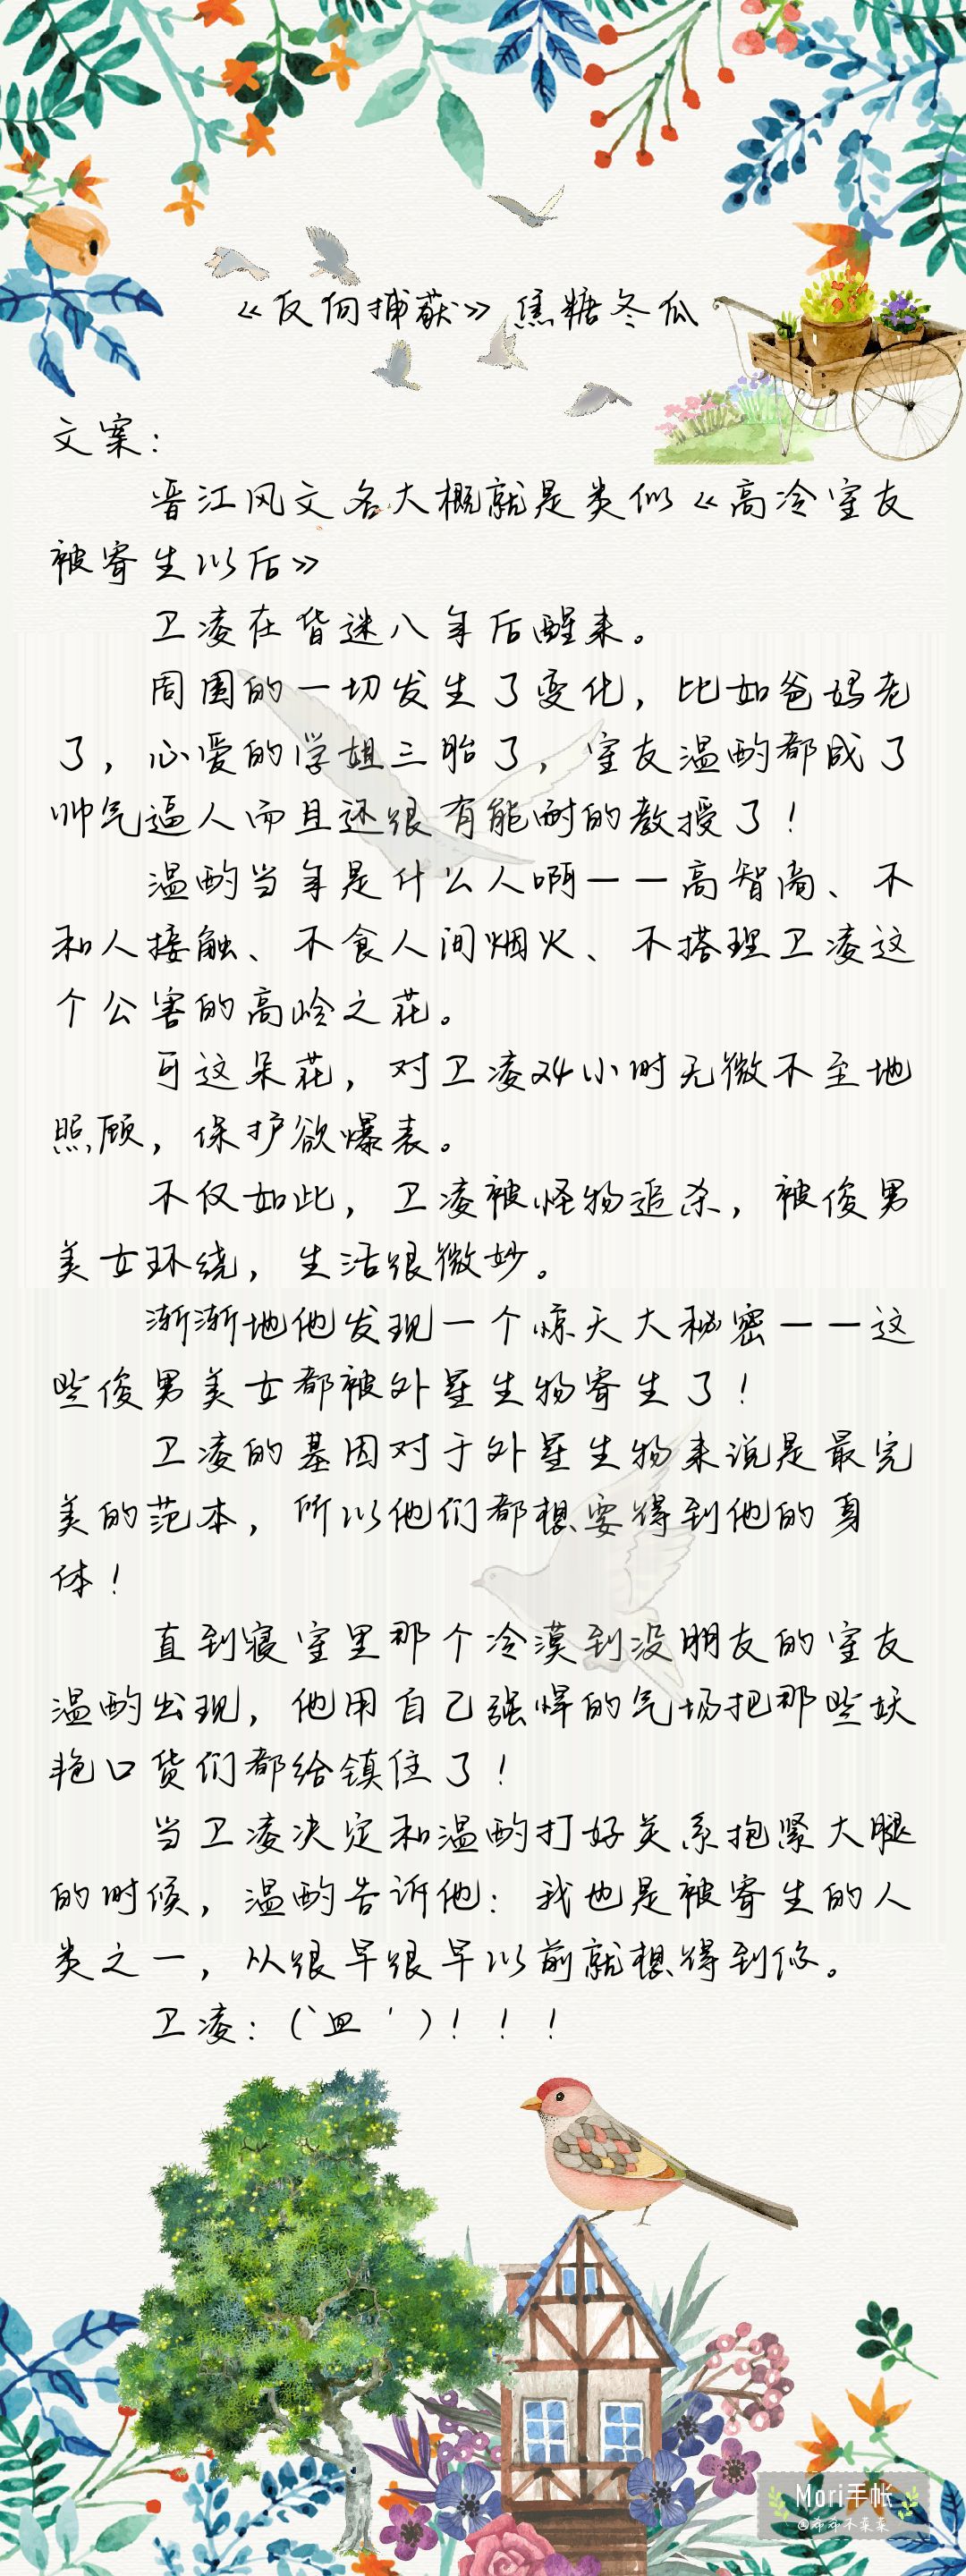 《反向捕获》焦糖冬瓜
文案：
晋江风文名大概就是类似《高冷室友
被寄生以后》
卫凌在昏迷八年后醒来。
周围的一切发生了变化，比如爸妈老
了，心爱的学姐三胎了，室友温酌都成了
帅气逼人而且还很有能耐的教授了！
温酌当年是什么人啊——高智商、不
和人接触、不食人间烟火、不搭理卫凌这
个公害的高岭之花。
可这朵花，对卫凌24小时无微不至地
照顾，保护欲爆表。
不仅如此，卫凌被怪物追杀，被俊男
美女环绕，生活很微妙。
渐渐地他发现一个惊天大秘密——这
些俊男美女都被外星生物寄生了！
卫凌的基因对于外星生物来说是最完
美的范本，所以他们都想要得到他的身
体！
直到寝室里那个冷漠到没朋友的室友
温酌出现，他用自己强悍的气场把那些妖
艳口货们都给镇住了！
当卫凌决定和温酌打好关系抱紧大腿
的时候，温酌告诉他：我也是被寄生的人
类之一，从很早很早以前就想得到你。
卫凌：(`皿´)！！！
Mori手帐
@布布不菜菜